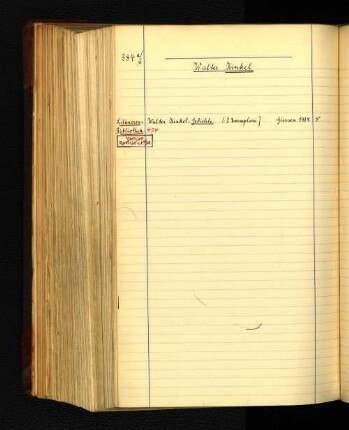 384 a/b
Walter Kinkel
Walter Kinkel: Gedichte. [2 Exemplare] Giessen 1904. 8°
Bibliothek